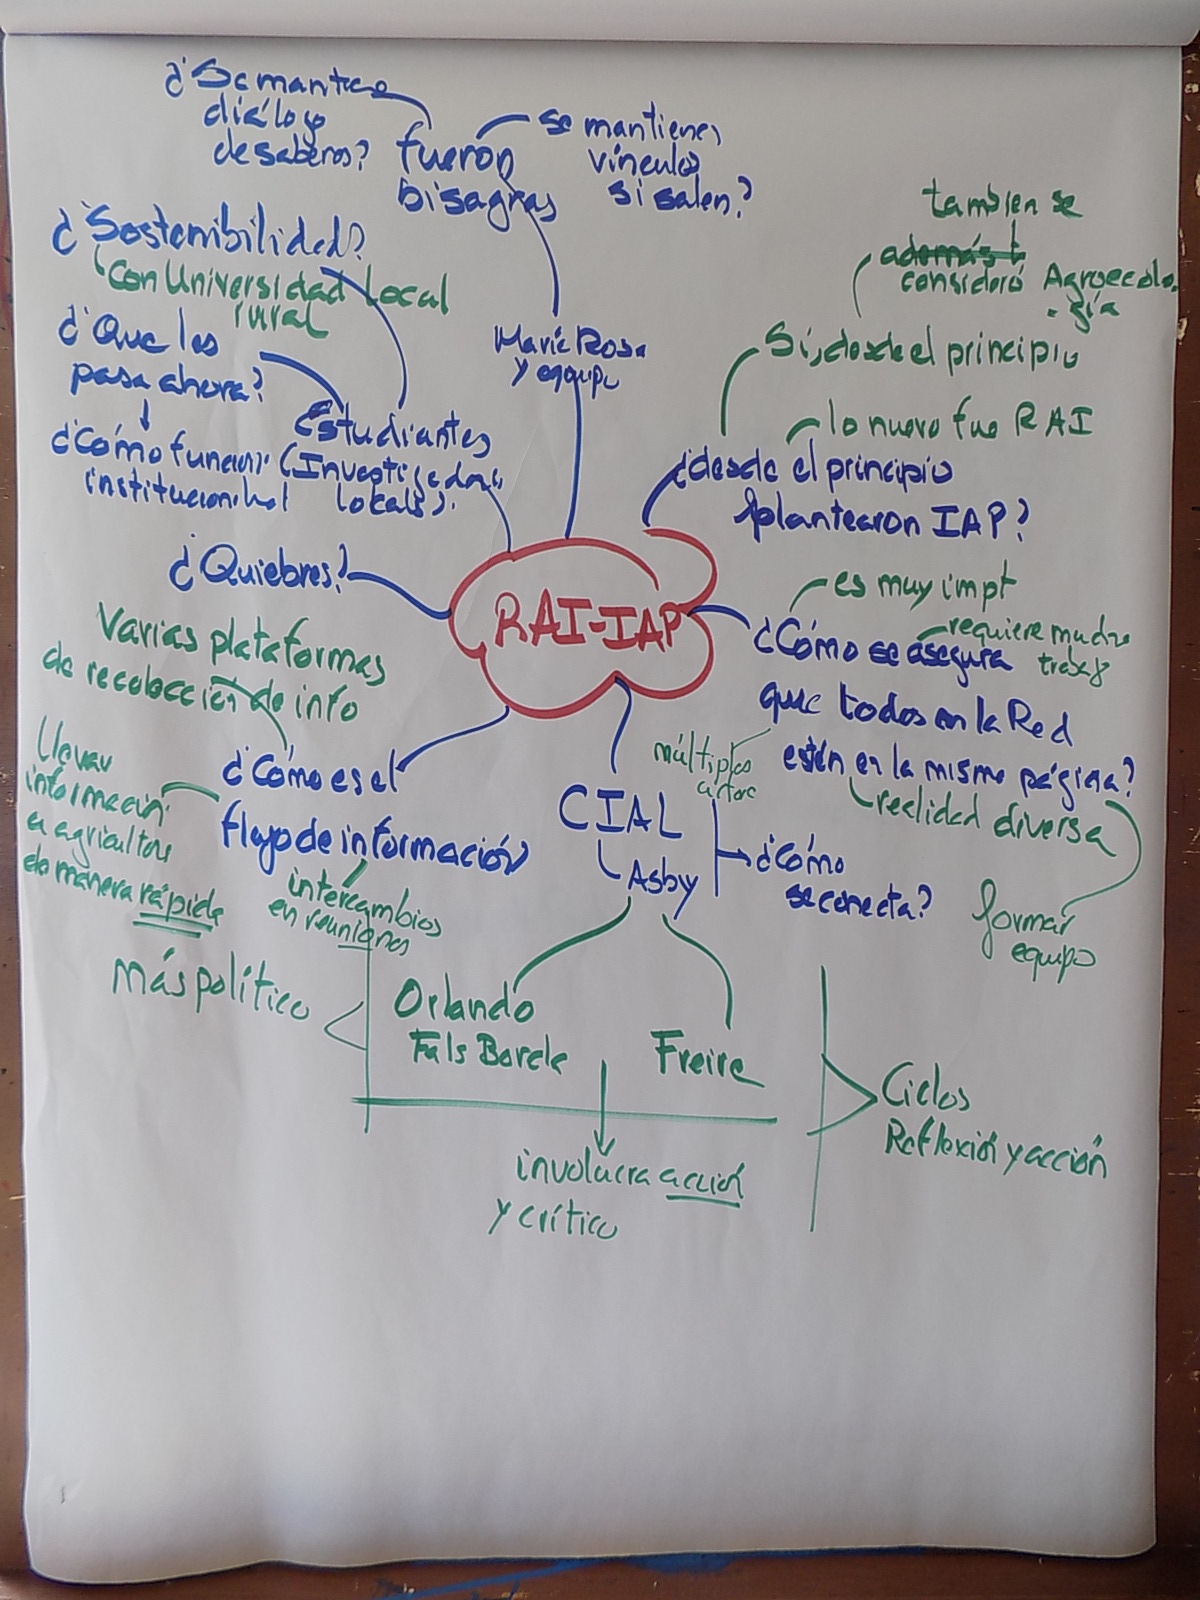 ¿Se mantiene
diálogo
de saberes?
fueron
bisagras
se mantienen
vínculos
si salen?
María Rosa
y equipo
¿Sostenibilidad?
Con Universidad Local
rural
¿Que les
pasa ahora?
¿Cómo funcion
institucional
Estudiantes
(Investigadores
locales).
¿Quiebres?
RAI-IAP
también se
además
consideró Agroecolo-
gía
Sí, desde el principio
lo nuevo fue RAI
¿desde el principio
plantearon IAP?
es muy impt
¿Cómo se asegura
requiere mucho
trabajo
que todos en la Red
estén en la misma página?
múltiples
actores
realidad diversa
formar
equipo
Varias plataformas
de recolección de info
¿Cómo es el
flujo de información
Llevar
información
a agricultores
de manera rápida
intercambios
en reuniones
CIAL
Asby
¿Cómo
se conecta?
Más político
Orlando
Fals Borda
Freire
involucra acción
y crítico
Ciclos
Reflexión y acción